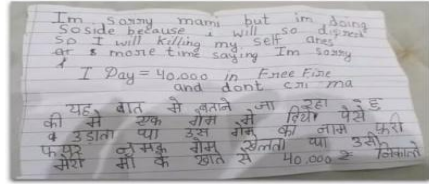 Im Sorry mami but im doing
Soside because i will so disprest
So I will killing my self ones
or 1 more time saying Im sorry
I Pay = 40.000 in Free Fire
and dont cri ma
यह बात मे बताने जा रहा हु
की मे एक गेम मे दिया पेसे
उड़ाता था उस गेम का नाम फरी
फायर नामक गेम खेलता था उसी
मेरी माँ के खाते से 40,000 ₹ निकाले